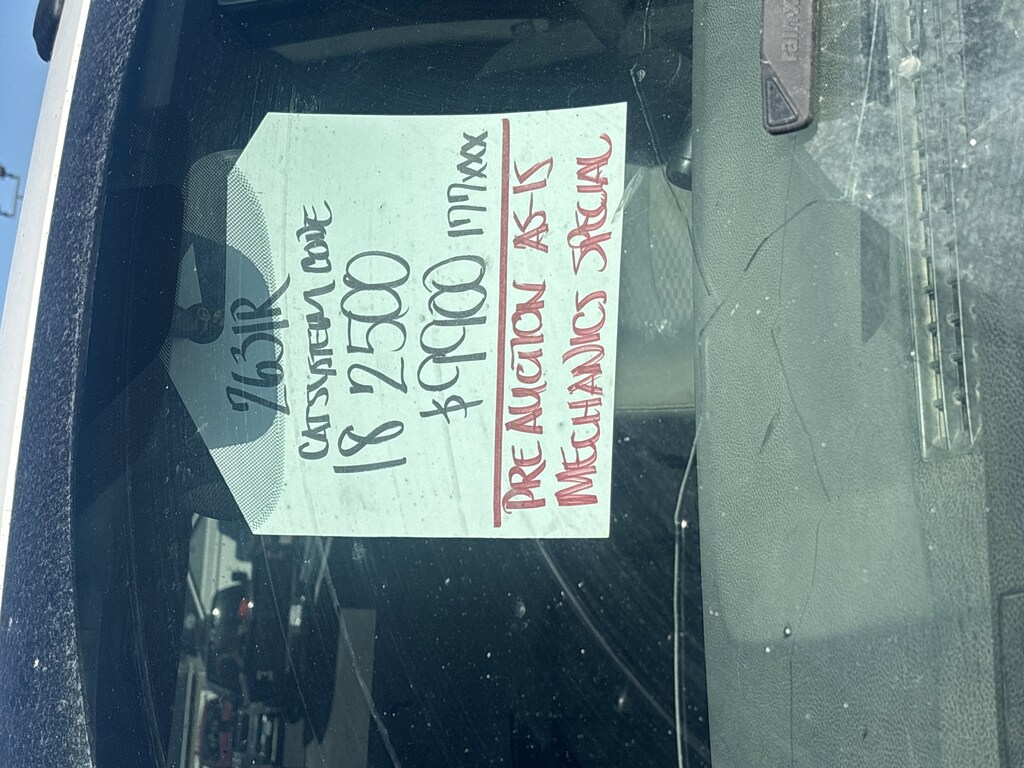 2631R
CATSYSTEM CODE
18 2500
$9900 177xxx
PRE AUCTION AS-IS
MECHANICS SPECIAL